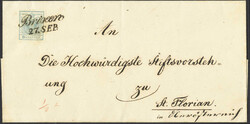 Brixen
27. SEP.
An
Die Hochwürdigste Stiftsvorsteh-
ung
zu
St. Florian.
in Oberösterreich